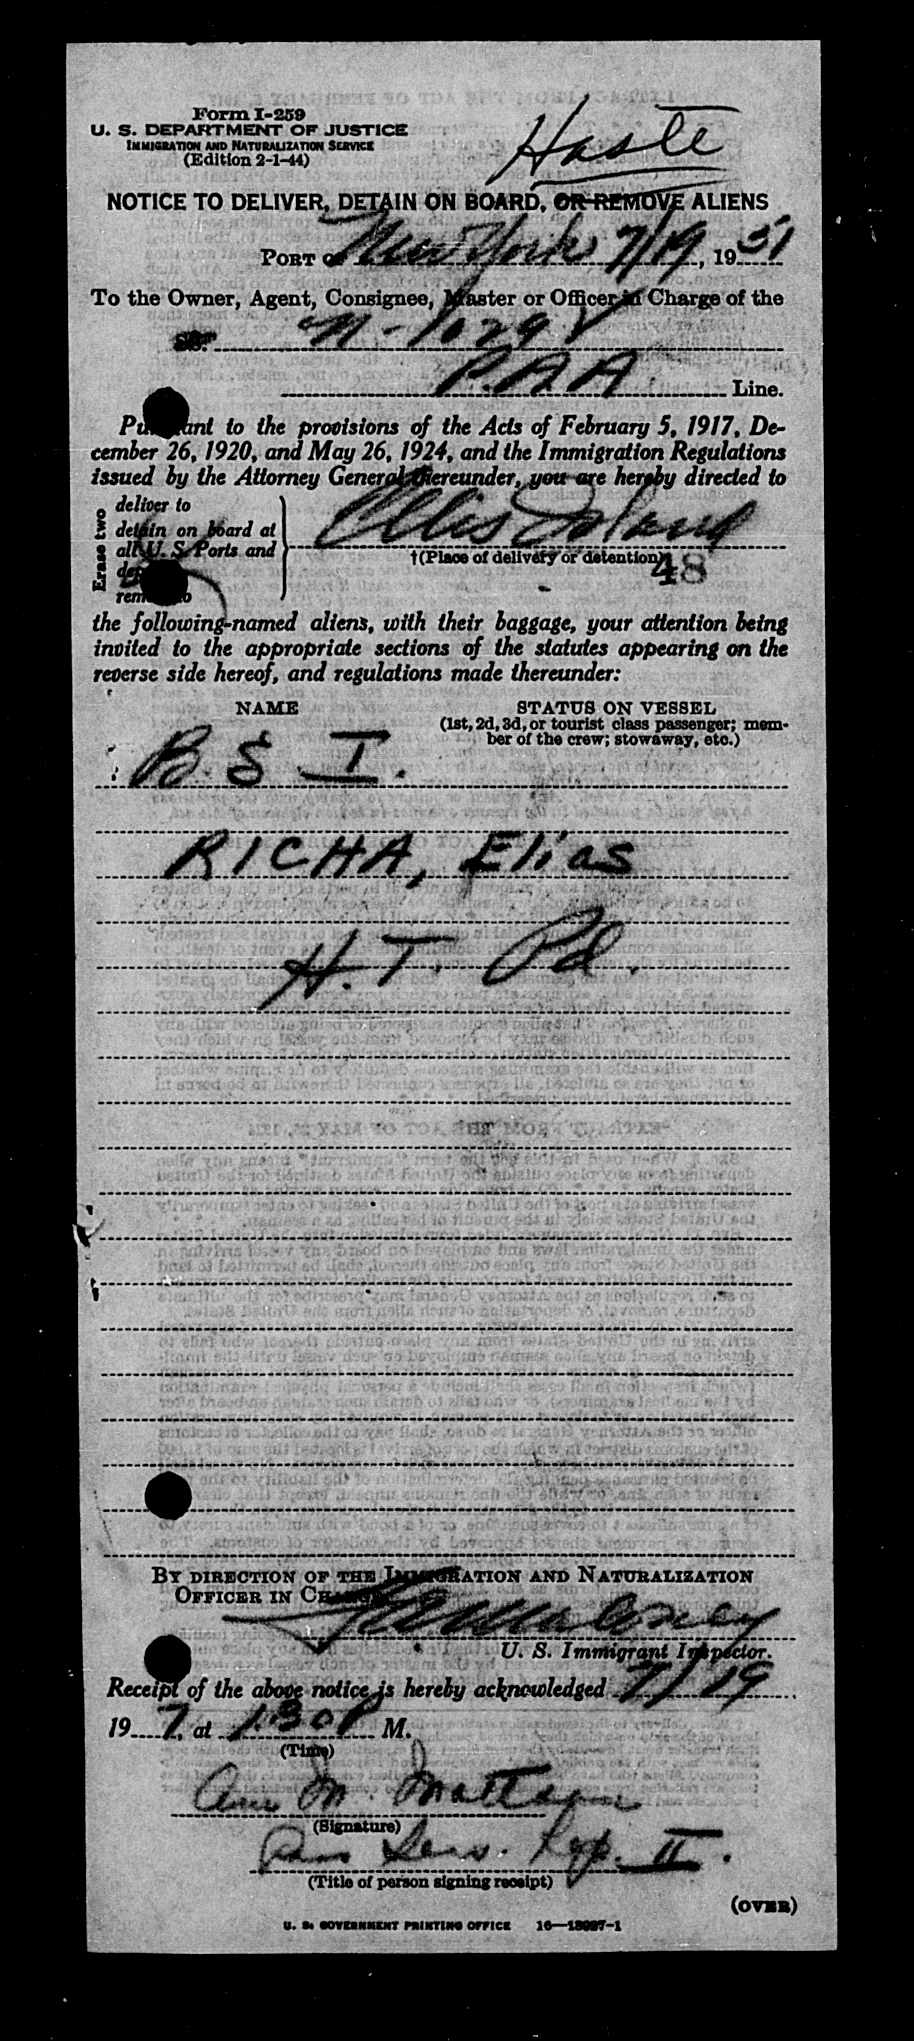 Form I-259
U. S. DEPARTMENT OF JUSTICE
IMMIGRATION AND NATURALIZATION SERVICE
(Edition 2-1-44)
Haste
NOTICE TO DELIVER, DETAIN ON BOARD, OR REMOVE ALIENS
PORT OF New York 7/19, 1951
To the Owner, Agent, Consignee, Master or Officer in Charge of the
SS. N-1029V
P.A.A. Line.
Pursuant to the provisions of the Acts of February 5, 1917, De-
cember 26, 1920, and May 26, 1924, and the Immigration Regulations
issued by the Attorney General thereunder, you are hereby directed to
Erase two
deliver to
detain on board at
all U. S. Ports and
remove to
Ellis Island
†(Place of delivery or detention)
48
the following-named aliens, with their baggage, your attention being
invited to the appropriate sections of the statutes appearing on the
reverse side hereof, and regulations made thereunder:
NAME
STATUS ON VESSEL
(1st, 2d, 3d, or tourist class passenger; mem-
ber of the crew; stowaway, etc.)
B. S. I.
RICHA, Elias
H.T. Pd.
BY DIRECTION OF THE IMMIGRATION AND NATURALIZATION
OFFICER IN CHARGE
U. S. Immigrant Inspector.
Receipt of the above notice is hereby acknowledged 7/19
19 7, at 1:30 P M.
(Time)
Ann M. Mattson
(Signature)
Pass Serv. Rep. II.
(Title of person signing receipt)
(OVER)
U. S. GOVERNMENT PRINTING OFFICE 16—13987-1